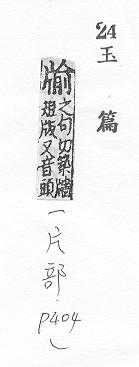 24
玉篇
牏
之句切築牆
短版又音頭
(片部.p404)